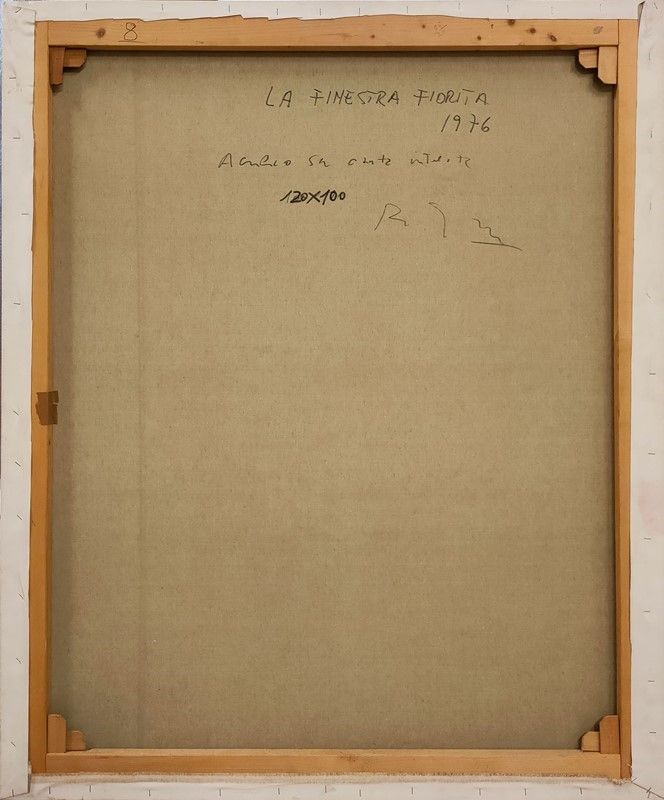 8
LA FINESTRA FIORITA
1976
Acrilico su carta intelata
120x100